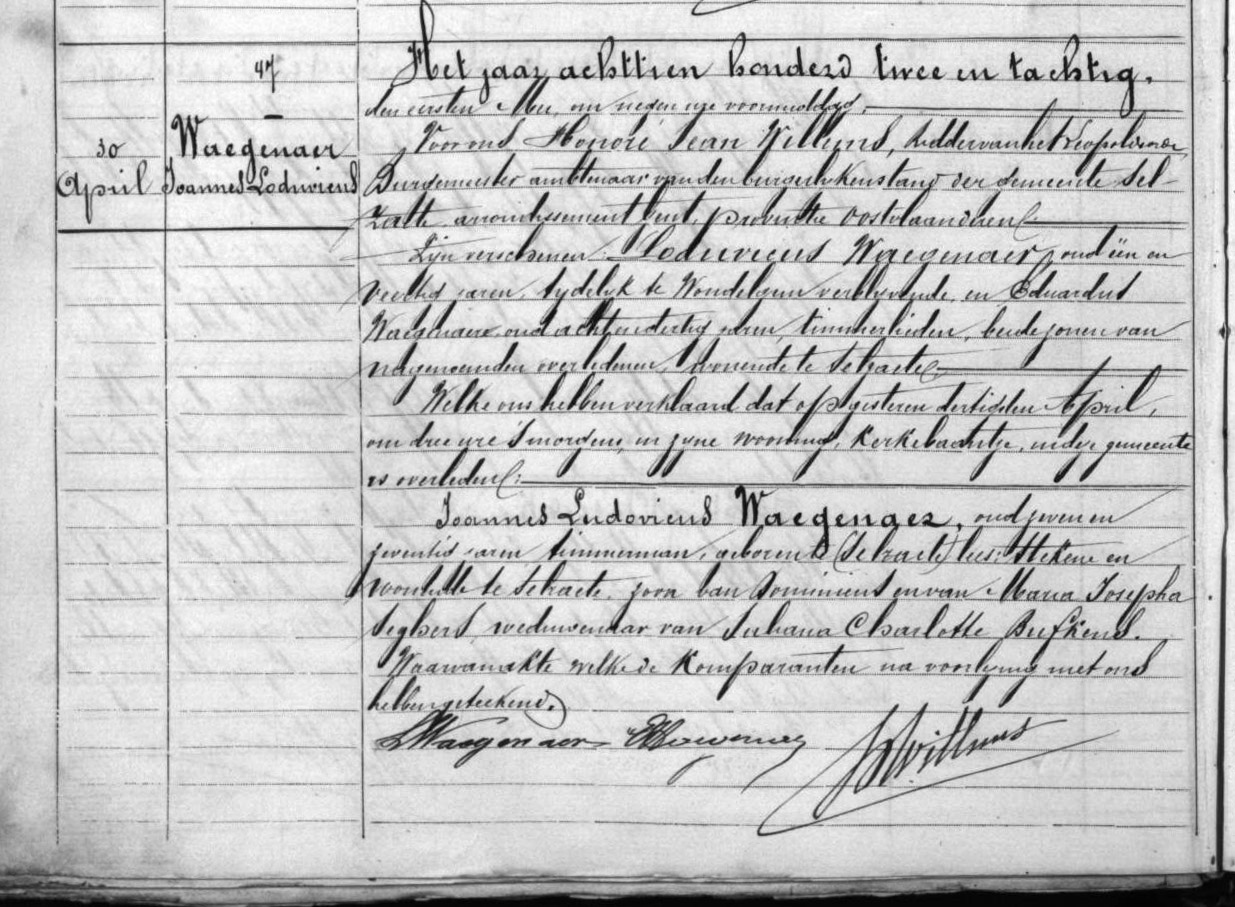 47
30
April
Waegenaer
Joannes Lodovicus
Het jaar achttien honderd twee en tachtig,
den eersten Mei, om negen ure voormiddag,
Voor ons Honoré Jean Willems, ridder van het Leopoldsorder,
Burgemeester ambtenaar van den burgerlyken stand der gemeente Sel-
zaete arrondissement Gent, provintie Oostvlaanderen
Zyn verschenen: Lodovicus Waegenaer, oud één en
veertig jaren, tydelyk te Wondelgem verblyvende, en Eduardus
Waegenaere, oud acht en dertig jaren, timmerlieden, beide zonen van
nagenoemden overledenen, wonende te Selzaete
Welke ons hebben verklaard dat op gisteren dertigsten April,
om drie ure 's morgens, in zyne wooning, Kerkebaantje, in deze gemeente
is overleden:
Joannes Ludovicus Waegenaer, oud zeven en
zeventig jaren, timmerman, geboren te (Selzaete) lees: Stekene en
woonende te Selzaete, zoon van Dominicus en van Maria Josepha
Seghers, weduwenaar van Juliana Charlotte Bufkens.
Waarvan akte welke de komparanten na voorlezing met ons
hebben geteekend.
L Waegenaer
Willems